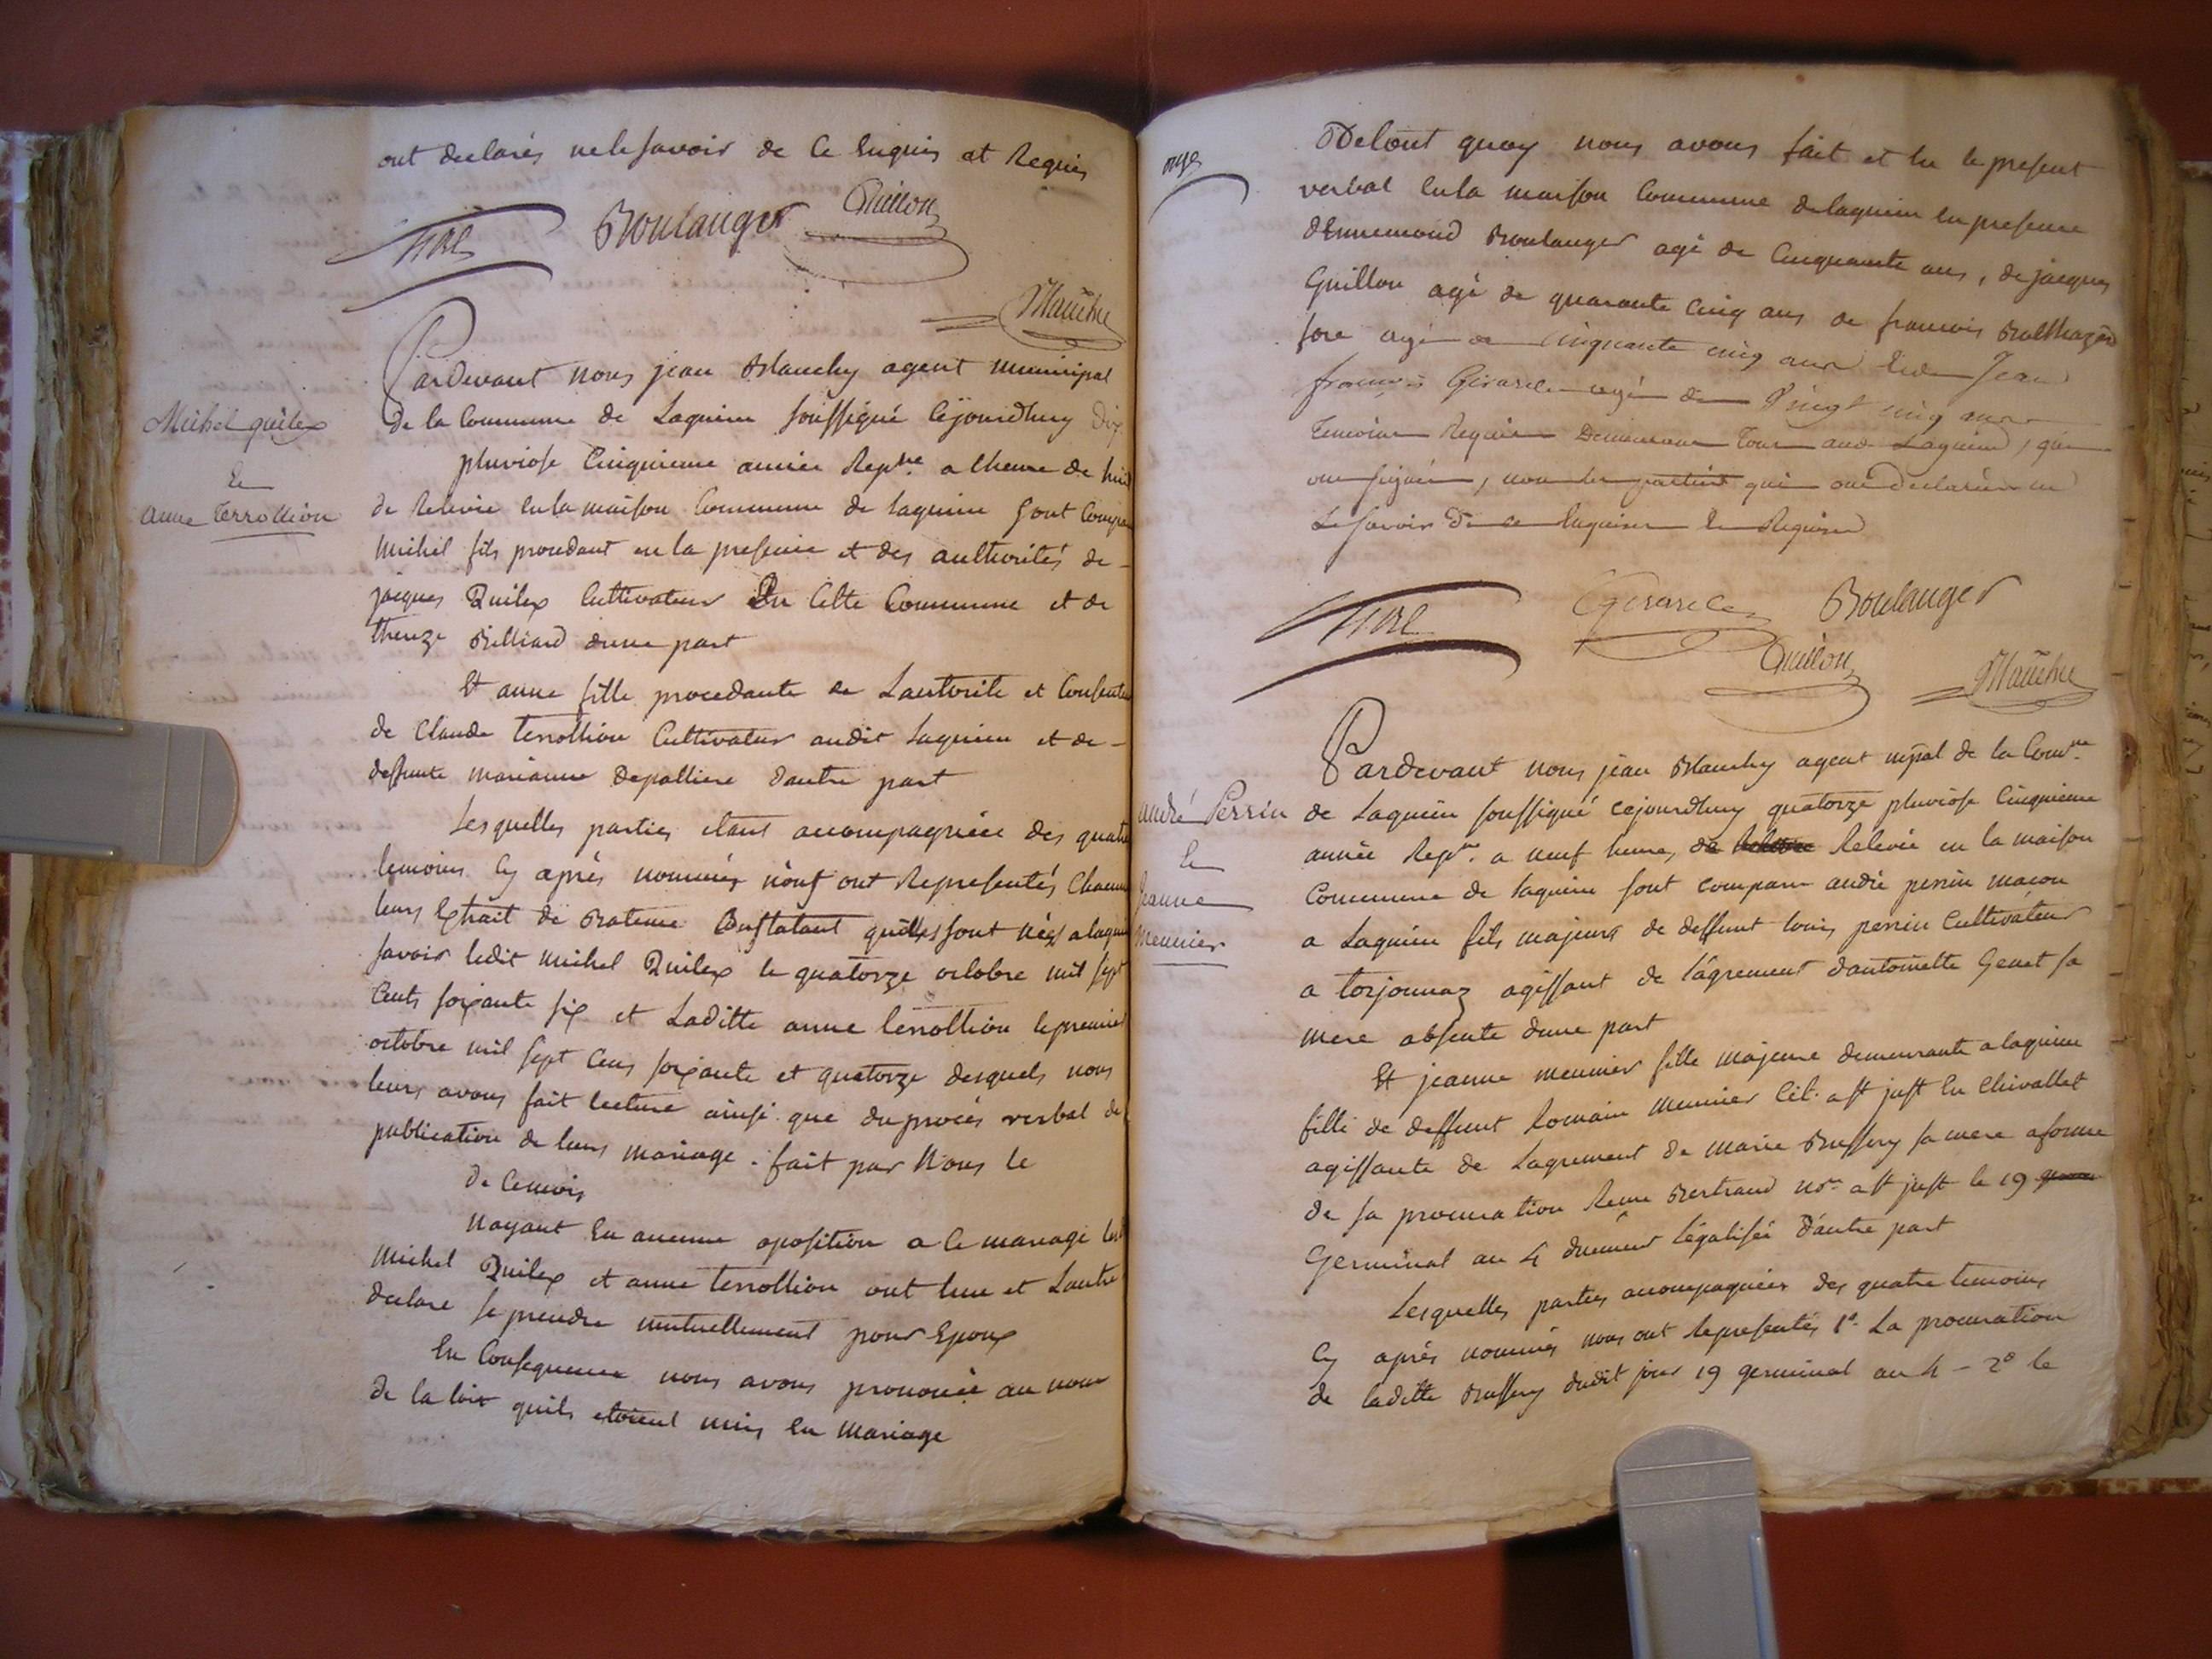 ont declarés ne le savoir de ce Enquis et Requis
Boulanger Guillon
Blanchy
Pardevant nous jean Blanchy agent municipal
Michel quilex
de la Commune de Lagnieu soussigné cejourdhuy Dix
pluviose Cinquieme année Repne a lheure de huit
Et
anne terrollion
de Relevée en la maison Commune de lagnieu sont Compar
Michel fils procedant en la presence et des authorités de
jacques Quilex Cultivateur En Cette Commune et de
thereze Billiard dune part
Et anne fille procedante de Lautorite et Consente
de Claude terrollion Cultivateur audit lagnieu et de
deffunte marianne Depalliere dautre part
Lesquelles parties etant accompagnées des quatre
temoins Cy après nommés nous ont Representés Chacun
leurs Extrait de Bateme Constatant quils sont nées a lagnieu
savoir ledit michel Quilex le quatorze octobre mil sept
Cents soixante six et Laditte anne terrollion le premier
octobre mil sept Cens soixante et quatorze desquels nous
leurs avons fait lecture ainsi que du procès verbal de
publication de leurs mariage. fait par Nous le
de Cemois
Nayant Eu aucune oposition a Ce mariage led
Michel Quilex et anne terrollion ont lun et Lautre
declare se prendre mutuellement pour Epoux
En Consequence nous avons prononcé au nom
de la loix quils etoient unis En Mariage
onze
De tout quoy nous avons fait et lu le present
verbal En la maison Commune de lagnieu En presence
dEnnemond Boulanger agé de Cinquante ans, de jacques
Guillon agé de quarante Cinq ans de francois Balthazard
fore agé de Cinquante cinq ans Et de Jean
francois Girard agé de Vingt cinq ans
temoins Requis Demeurans Tous aud Lagnieu, qui
ont signés, non les parties qui ont declarés ne
Le savoir de ce Enquises Et Requises
Girard Boulanger
Guillon Blanchy
Pardevant nous jean Blanchy agent mpal de la Comne
andré Perrin
Et
Jeanne
meunier
de Lagnieu soussigné cejourdhuy quatorze pluviose Cinquieme
année Repne a neuf heure, de Relevée en la maison
Commune de lagnieu sont compars andré perrin macon
a Lagnieu fils majeurs de deffunt louis perrin Cultivateur
a torjonnaz agissant de lagrement dantoinette Genet sa
mere absente dune part
Et jeanne meunier fille majeure demeurante a lagnieu
fille de deffunt Romain Meunier Cult. a st just En Chivallet
agissante de Lagrement de marie Bussery sa mere a forme
de sa procuration Reçue Bertrand nore a st just le 19
Germinal an 4 duement légalisée Dautre part
Lesquelles parties accompagnées des quatre temoins
Cy après nommés nous ont Representés 1°. La procuration
de laditte Bussery dudit jour 19 germinal an 4 - 2° le